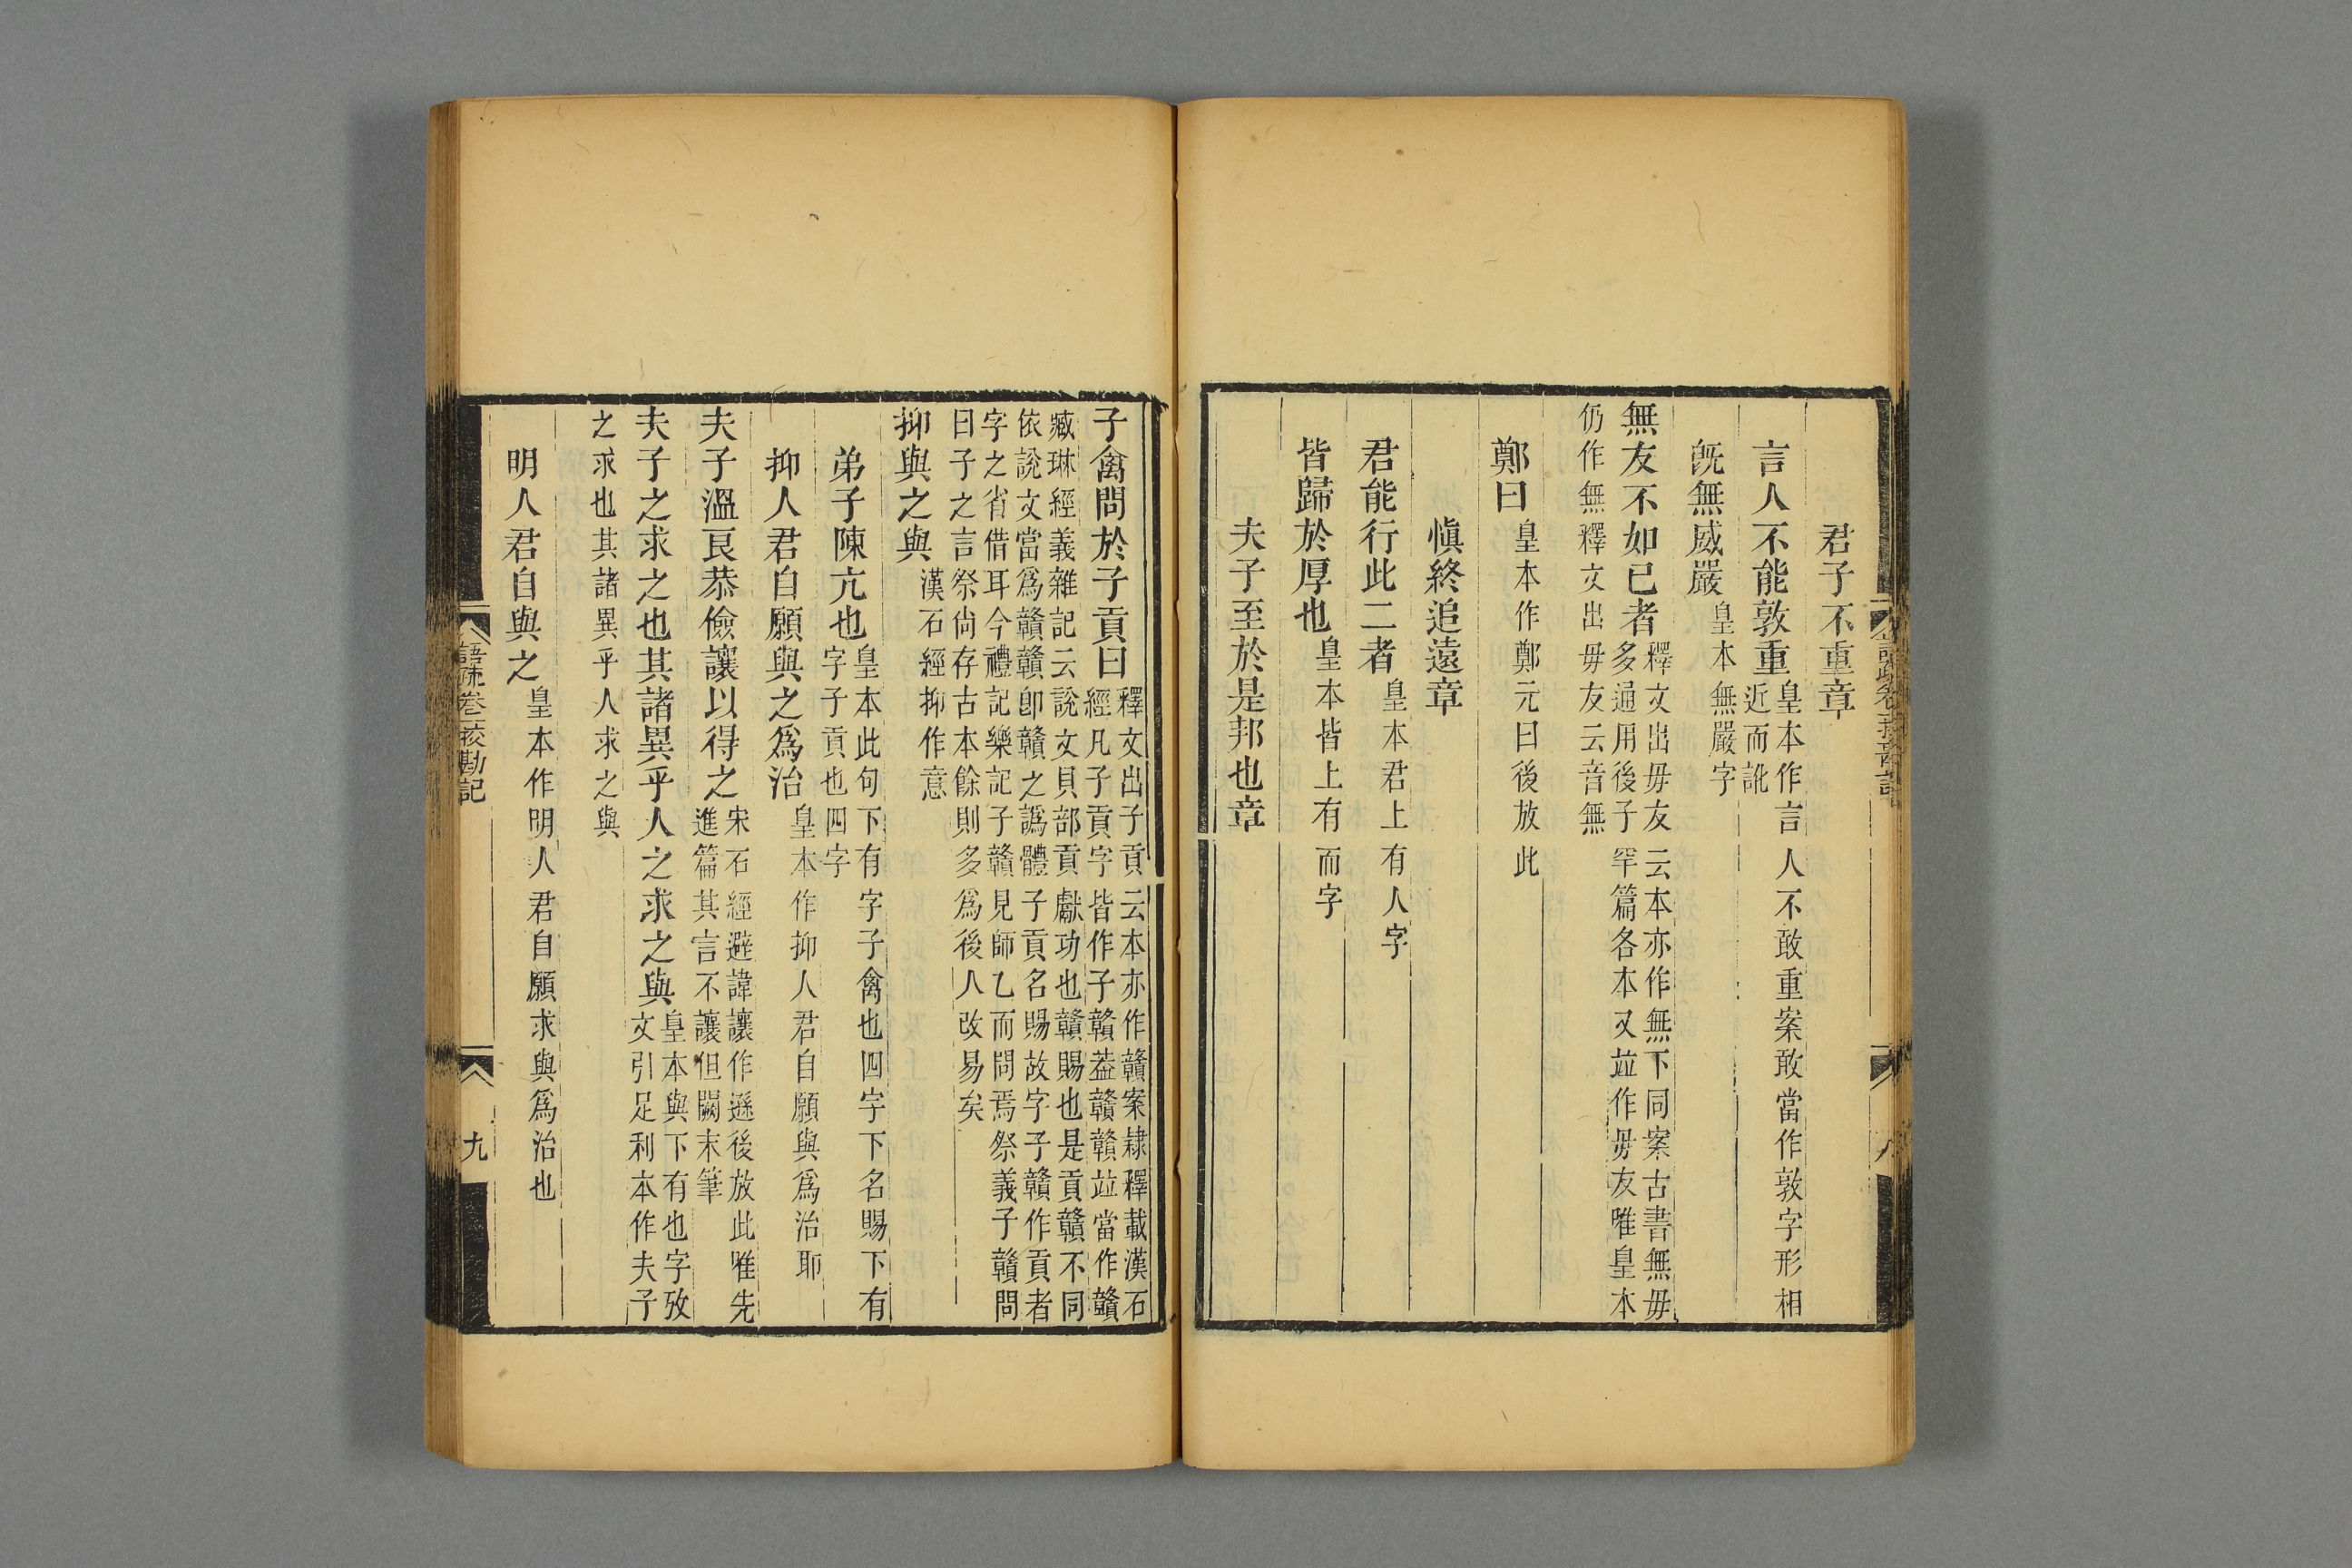 君子不重章
言人不能敦重皇本作言人不敢重案敢當作敦字形相近而訛
旣無威嚴皇本無嚴字
無友不如已者釋文出毋友云本亦作無下同案古書無毋多通用後子罕篇各本又竝作毋友唯皇本
仍作無釋文出毋友云音無
鄭曰皇本作鄭元曰後放此
愼終追遠章
君能行此二者皇本君上有人字
皆歸於厚也皇本皆上有而字
夫子至於是邦也章
子禽問於子貢曰釋文出子貢云本亦作贛案隷釋載漢石經凡子貢字皆作子贛葢贛贛竝當作贛
臧琳經義雜記云說文貝部貢獻功也贛賜也是貢贛不同
依說文當爲贛贛卽贛之譌體子貢名賜故字子贛作貢者
字之省借耳今禮記樂記子贛見師乙而問焉祭義子贛問
曰子之言祭尙存古本餘則多爲後人改易矣
抑與之與漢石經抑作意
弟子陳亢也皇本此句下有字子禽也四字下名賜下有字子貢也四字
抑人君自願與之爲治皇本作抑人君自願與爲治耶
夫子溫良恭儉讓以得之宋石經避諱讓作遜後放此唯先進篇其言不讓但闕末筆
夫子之求之也其諸異乎人之求之與皇本與下有也字攷文引足利本作夫子
之求也其諸異乎人求之與
明人君自與之皇本作明人君自願求與爲治也
語疏卷一挍勘記
九